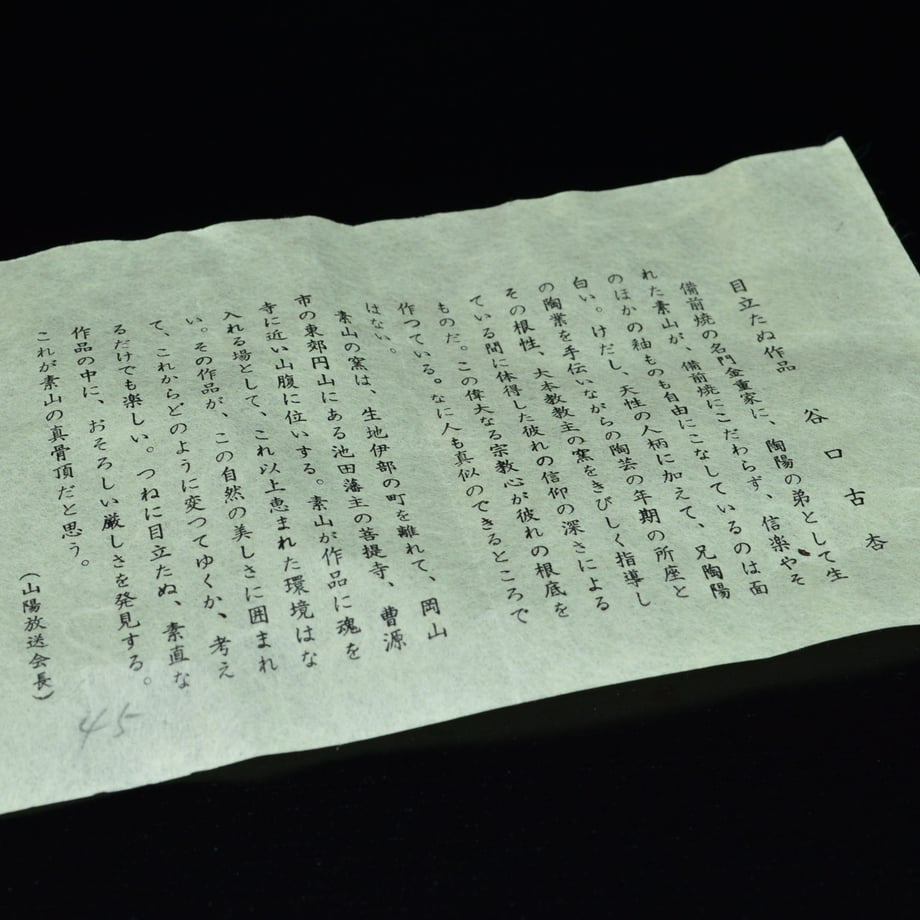 目立たぬ作品
谷口古杏
備前焼の名門金重家に、陶陽の弟として生
れた素山が、備前焼にこだわらず、信楽やそ
のほかの釉ものも自由にこなしているのは面
白い。けだし、天性の人柄に加えて、兄陶陽
の陶業を手伝いながらの陶芸の年期の所産と
その根性、大本教教主の窯をきびしく指導し
ている間に体得した彼れの信仰の深さによる
ものだ。この偉大なる宗教心が彼れの根底を
作つている。なに人も真似のできるところで
はない。
素山の窯は、生地伊部の町を離れて、岡山
市の東郊円山にある池田藩主の菩提寺、曹源
寺に近い山腹に位いする。素山が作品に魂を
入れる場として、これ以上恵まれた環境はな
い。その作品が、この自然の美しさに囲まれ
て、これからどのように変つてゆくか、考え
るだけでも楽しい。つねに目立たぬ、素直な
作品の中に、おそろしい厳しさを発見する。
これが素山の真骨頂だと思う。
(山陽放送会長)
45